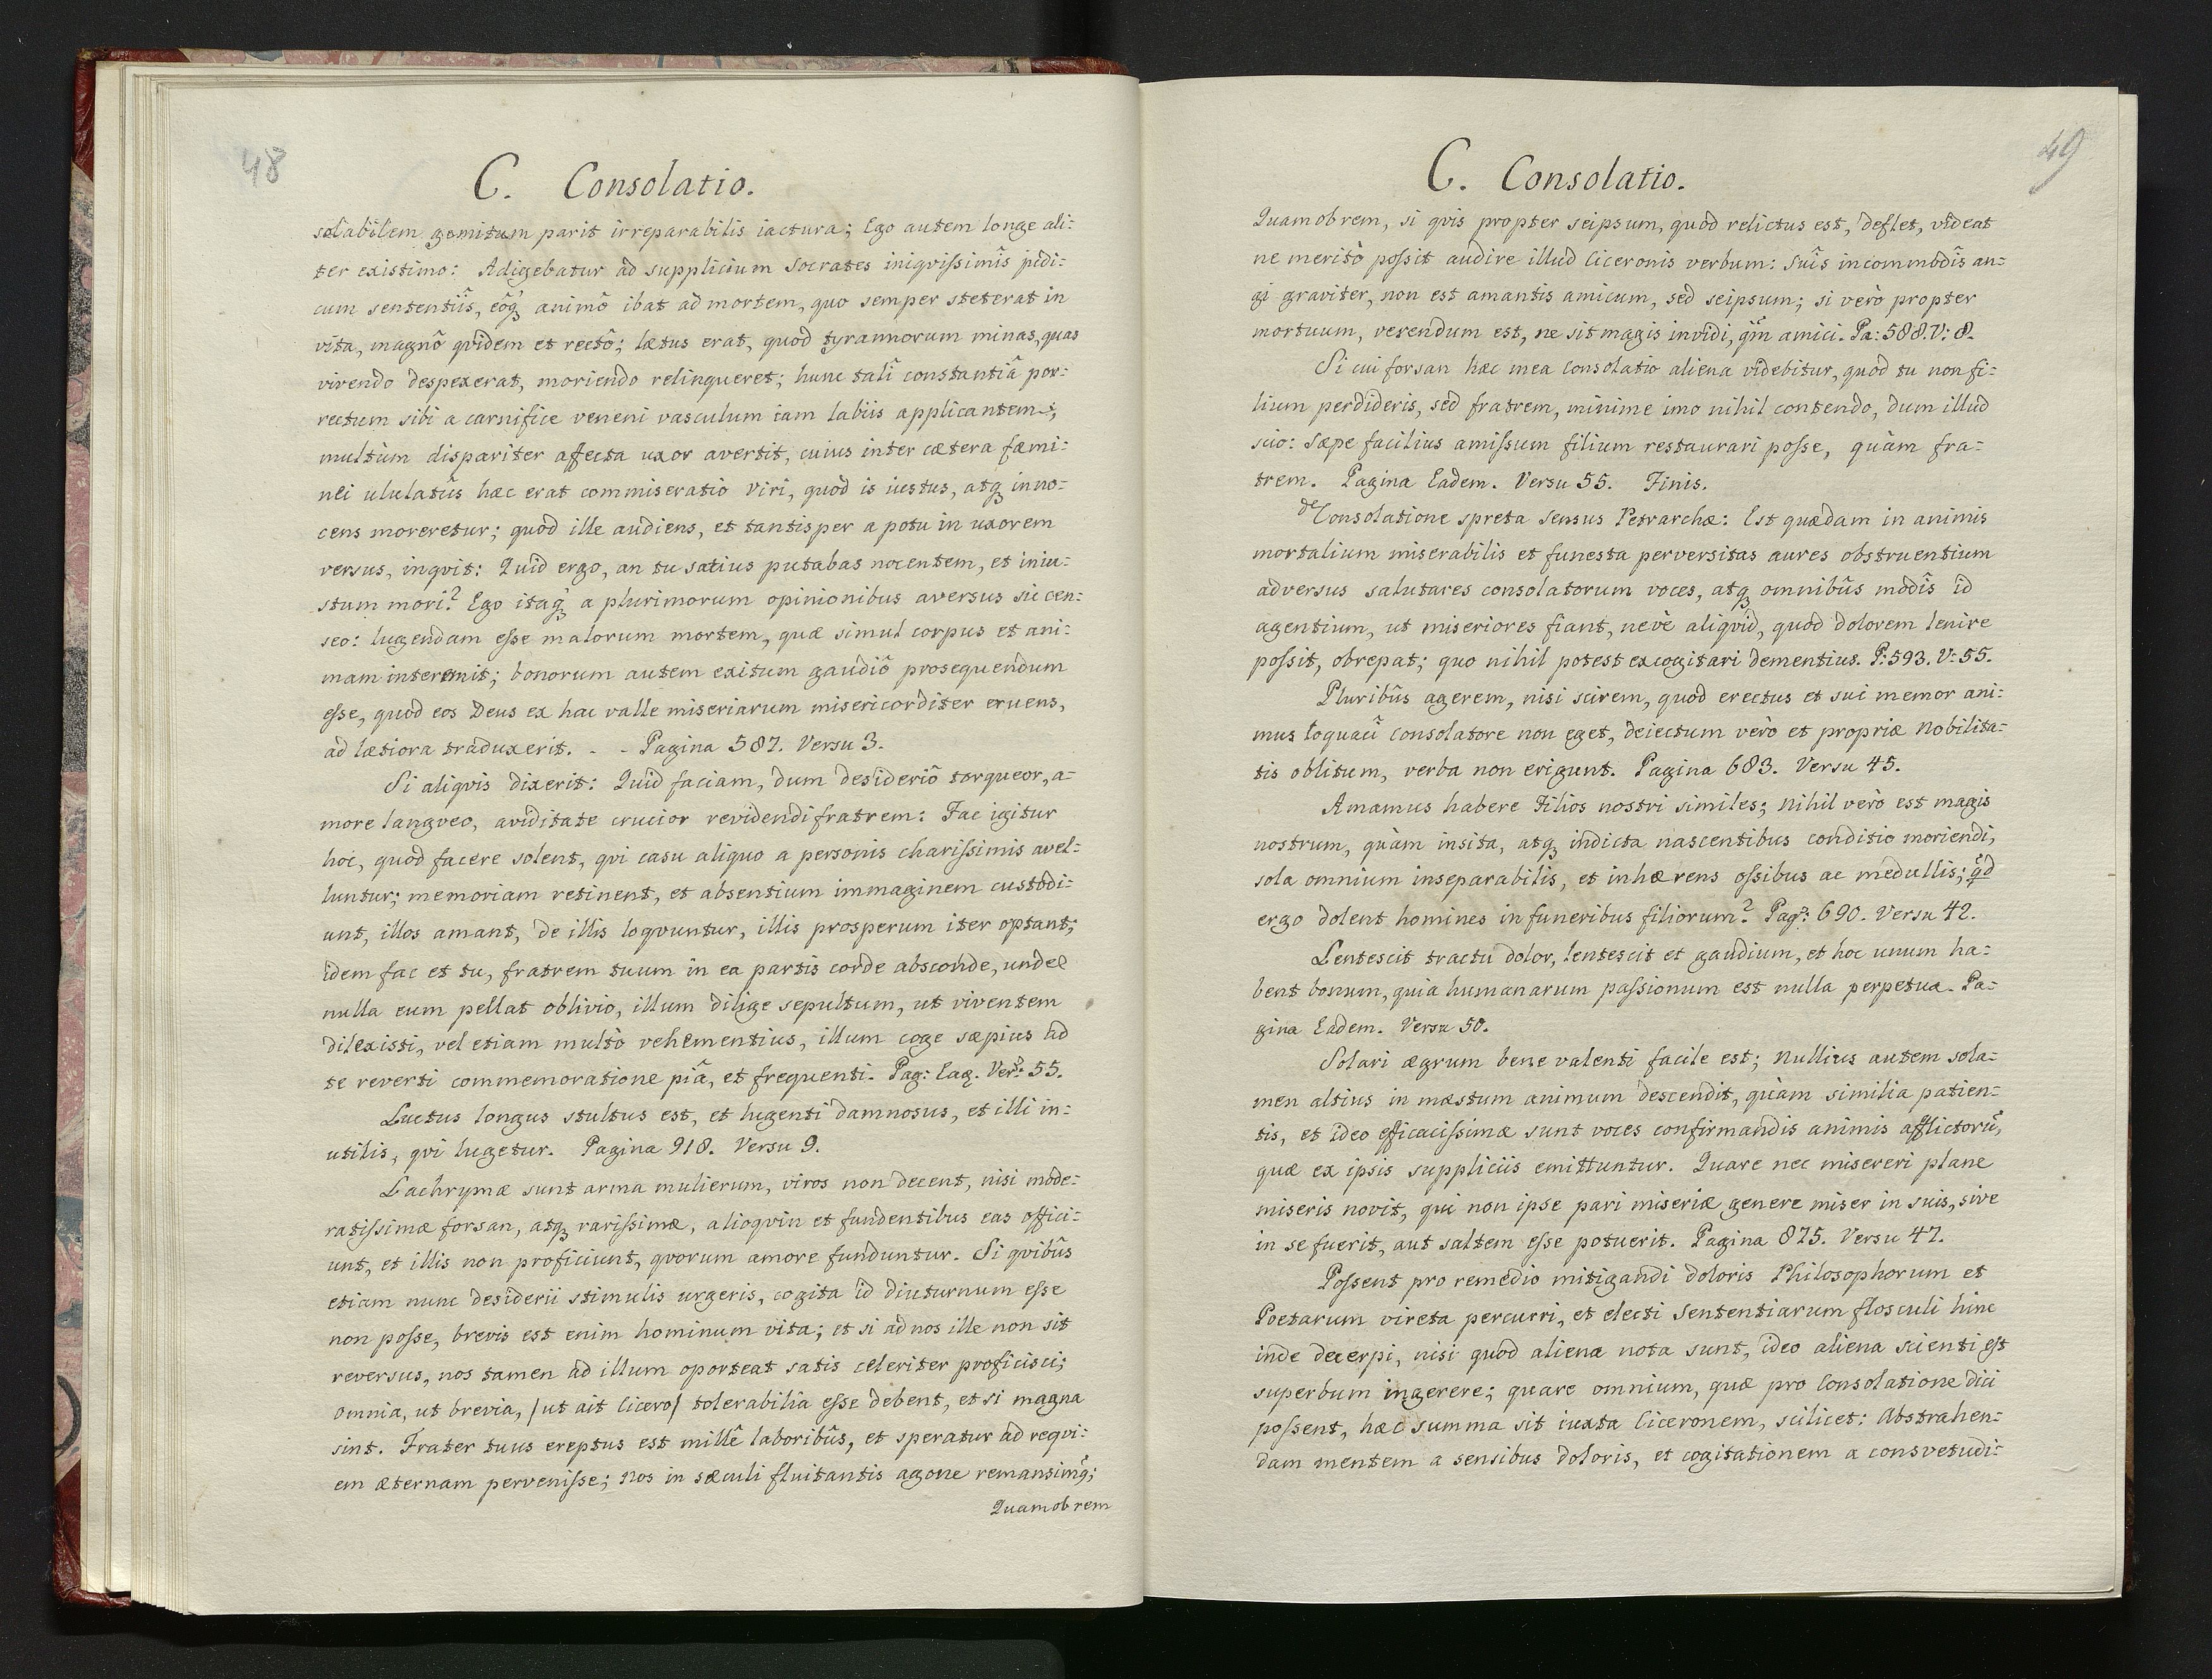 48
C. Consolatio.
solabilem gemitum parit irreparabilis iactura; Ego autem longe ali:
ter existimo: Adigebatur ad supplicium Socrates iniqvissimîs jῡdi:
cum sententiîs, eôq́ꝫ animô ibat ad mortem, quo semper steterat in
vita, magnô qvidem et rectô; lætus erat, quod tyrannorum minas, quas
vivendo despexerat, moriendo relinqueret; hunc talî constantiâ por:
rectum sibi a carnifice veneni vasculum iam labiis applicantem;
multùm dispariter affecta uxor avertit, cuius inter cætera fæmi:
nei ululatûs hæc erat commiseratio viri, quòd is iustus, atqꝫ inno:
cens moreretur; quod ille audiens, et tantisper a potu in uxorem
versus, inqvit: Quid ergo, an tu satius putabas nocentem, et iniu:
stum mori? Ego itaq́ꝫ a plurimorum opinionibus aversus sic cen:
seo: lugendam esse malorum mortem, quæ simul corpus et ani:
mam interemit; bonorum autem exitum gaudiô prosequendum
esse, quod eos Deus ex hac valle miseriarum misericorditer eruens,
ad lætiora traduxerit. - - Pagina 587. Versu 3.
Si aliqvis dixerit: Quid faciam, dum desideriô torqueor, a=
more langveo, aviditate crucior revidendi fratrem: Fac igitur
hoc, quod facere solent, qvi casu aliquo a personis charissimis avel:
luntur; memoriam retinent, et absentium immaginem custodi:
unt, illos amant, de illis loqvuntur, illis prosperum iter optant;
idem fac et tu, fratrem tuum in ea partis corde absconde, unde
nulla eum pellat oblivio, illum dilige sepultum, ut viventem
dilexisti, vel etiam multò vehementius, illum coge sæpius ad
te reverti commemoratione piâ, et frequenti. Pag: Eaq. Verˢ: 55.
Luctus longus stultus est, et lugenti damnosus, et illi in:
utilis, qvi lugetur. Pagina 918. Versu 9.
Lachrymæ sunt arma mulierum, viros non decent, nisi mode:
ratissimæ forsan, atqꝫ rarissimæ, alioqvin et fundentibus eas offici:
unt, et illis non proficiunt, qvorum amore funduntur. Si qvibûs
etiam nunc desiderii stimulis urgeris, cogita id diuturnum esse
non posse, brevis est enim hominum vita; et si ad nos ille non sit
reversus, nos tamen ad illum oporteat satis celeriter proficisci;
omnia, ut brevia, /ut ait Cicero/ tolerabilia esse debent, et si magna
sint. Frater tuus ereptus est millê laboribûs, et speratur ad reqvi:
em æternam pervenisse; nos in sæculi fluitantis agone remansimꝰ;
Quamobrem
49
C. Consolatio.
Quamobrem, si qvis propter seipsum, quod relictus est, deflet, videat
ne meritò possit audire illud Ciceronis verbum: Suîs incommodîs an=
gi graviter, non est amantis amicum, sed seipsum; si verò propter
mortuum, verendum est, ne sit magis invidi, qm̃ amici. Pa: 588. V: 8.
Si cui forsan hæc mea Consolatio aliena videbitur, quod tu non fi:
lium perdideris, sed fratrem, minime imo nihil contendo, dum illud
scio: Sæpe facilius amissum filium restaurari posse, quàm fra=
trem. Pagina Eadem. Versu 55. Finis.
de Consolatione spreta sensus Petrarchæ: Est quædam in animis
mortalium miserabilis et funesta perversitas aures obstruentium
adversus salutares consolatorum voces, atqꝫ omnibûs modîs id
agentium, ut miseriores fiant, nevè aliqvid, quod dolorem lenire
possit, obrepat; quo nihil potest excogitari dementius. P: 593. V: 55.
Pluribûs agerem, nisi scirem, quod erectus et sui memor ani:
mus loquacî Consolatore non eget, deiectum verò et propriæ nobilita=
tis oblitum, verba non erigunt. Pagina 683. Versu 45.
Amamus habere Filios nostri similes; nihil verò est magis
nostrum, quàm insita, atqꝫ indicta nascentibus conditio moriendi,
sola omnium inseparabilis, et inhærens ossibus ac medullis; q̃d
ergo dolent homines in funeribus filiorum? Pagᵃ: 690. Versu 42.
Lentescit tractu dolor, lentescit et gaudium, et hoc unum ha=
bent bonum, quia humanarum passionum est nulla perpetua. Pa=
gina Eadem. Versu 50.
Solari ægrum bene valenti facile est; nullius autem sola=
men altius in mæstum animum descendit, quàm similia patien=
tis, et ideo efficacissimæ sunt voces confirmandis animis afflictorũ,
quæ ex ipsis suppliciis emittuntur. Quare nec misereri plane
miseris novit, qui non ipse pari miseriæ genere miser in suis, sive
in se fuerit, aut saltem esse potuerit. Pagina 825. Versu 47.
Possent pro remedio mitigandi doloris Philosophorum et
Poetarum vireta percurri, et electi Sententiarum flosculi hinc
inde decerpi, nisi quod aliena nota sunt, ideo aliena scienti est
superbum ingerere; quare omnium, quæ pro Consolatione dici
possent, hæc summa sit iuxta Ciceronem, scilicet: Abstrahen=
dam mentem a sensibus doloris, et cogitationem a consvetudi: